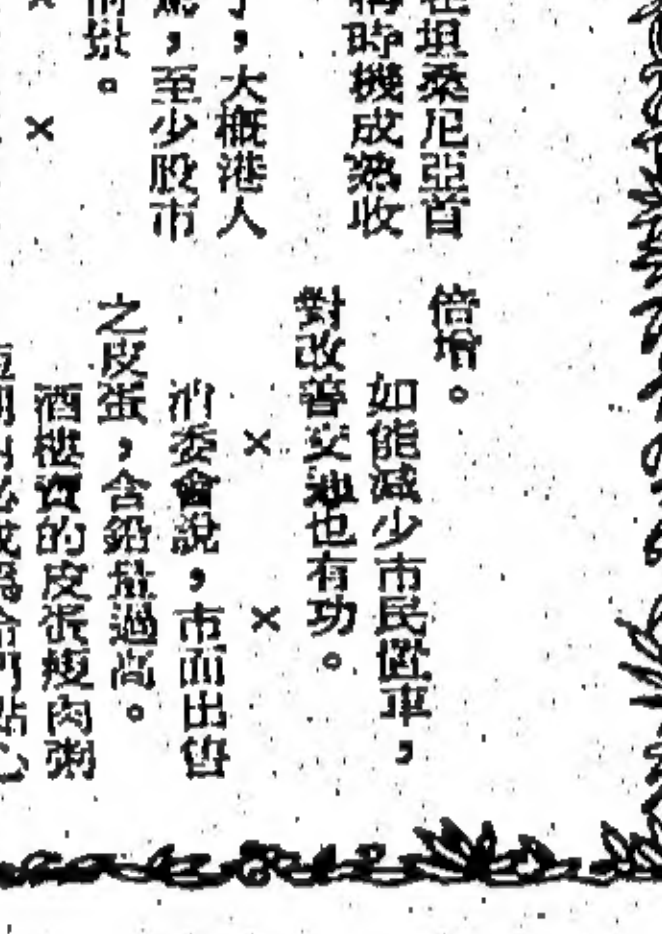 在坦桑尼亞首
時機成熟收
，大概港人
，至少股市
景。
×
倍增。
如能減少市民置車，
對改善交通也有功。
× ×
消委會說，市面出售
之皮蛋，含鉛量過高。
酒樓賣的皮蛋瘦肉粥